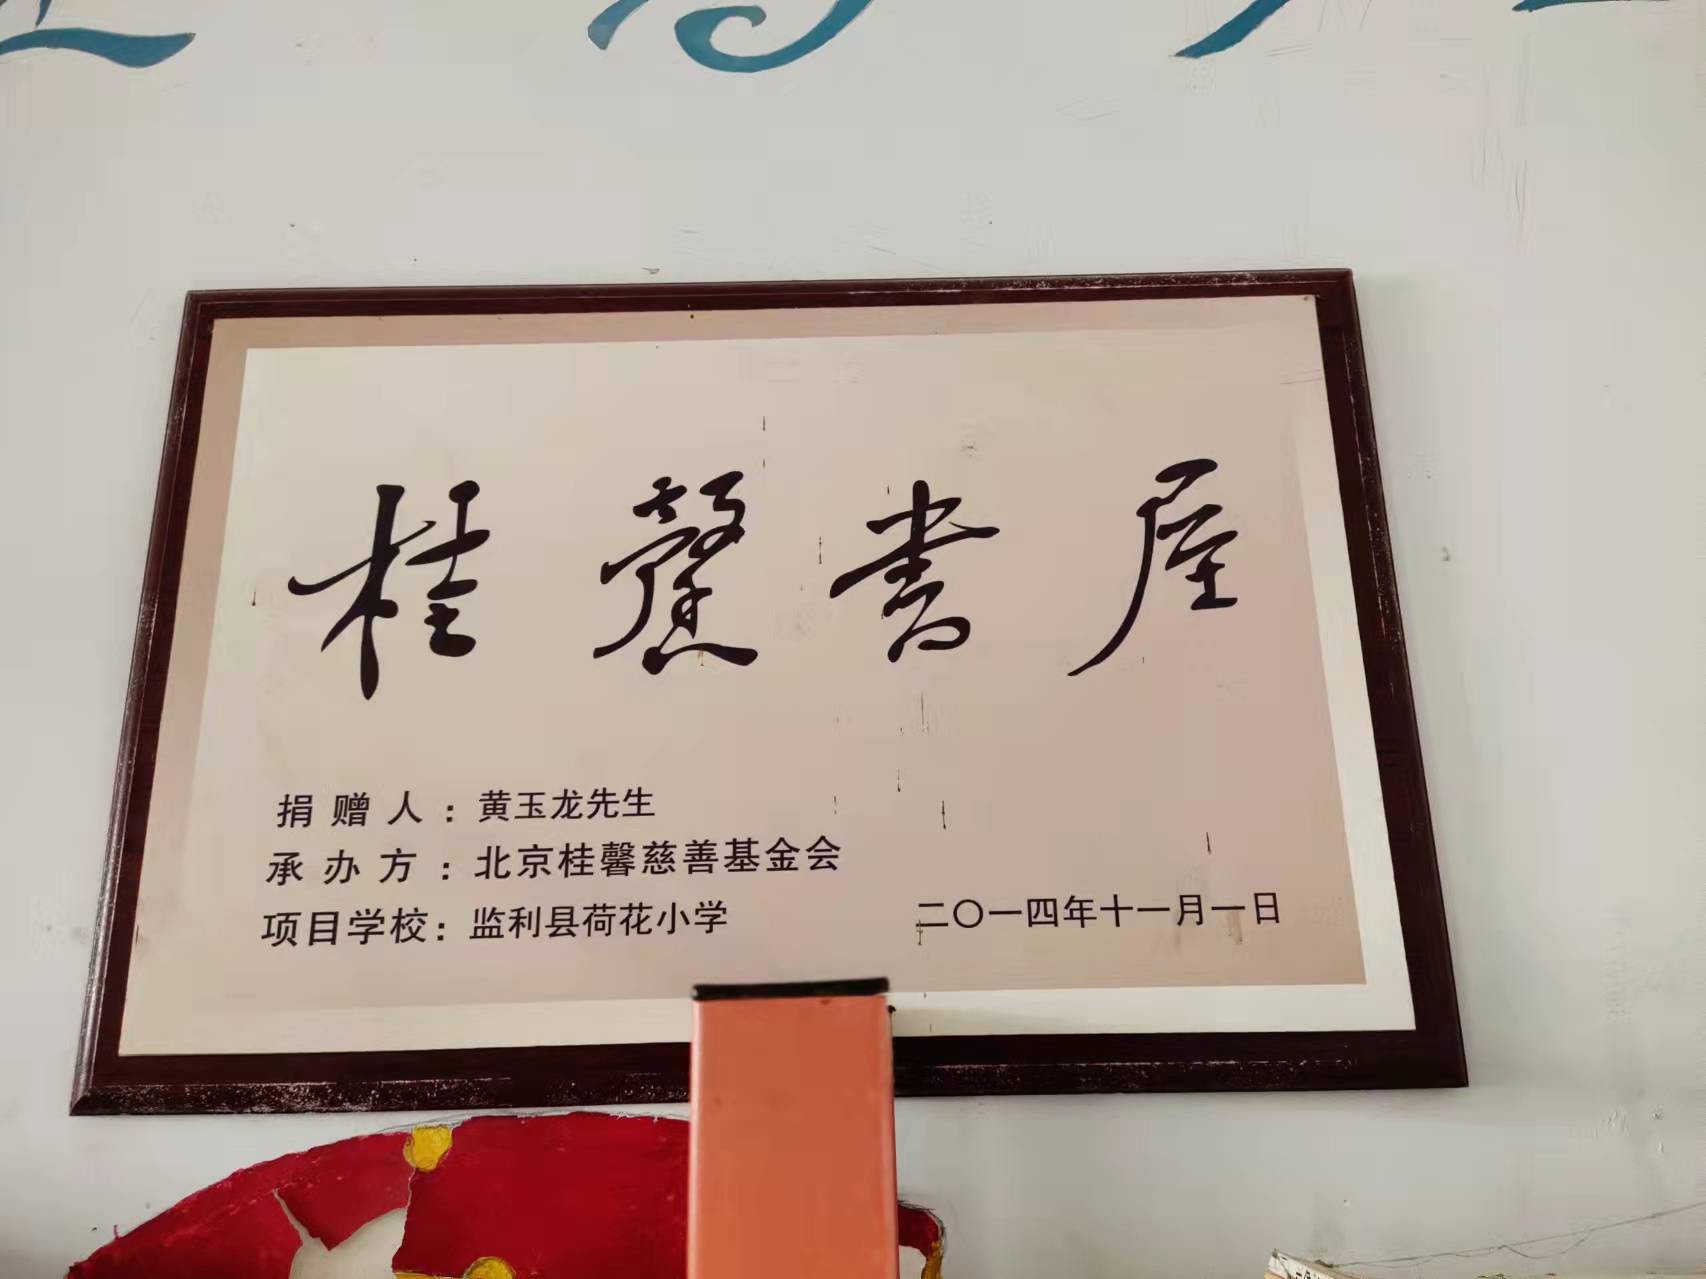 桂馨书屋
捐赠人：黄玉龙先生
承办方：北京桂馨慈善基金会
项目学校：监利县荷花小学
二〇一四年十一月一日